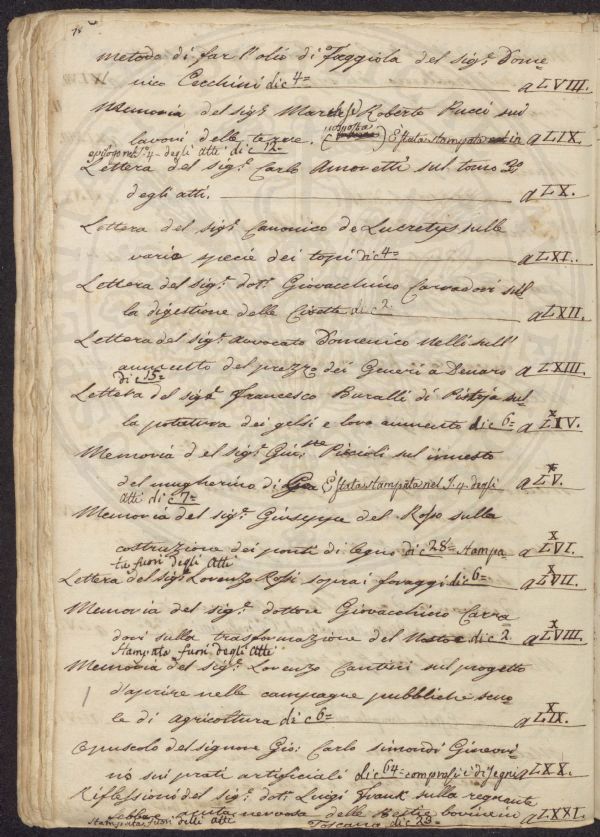 78
metodo di far l'olio di Faggiola del sig.r Dome=
nico Cecchini di c 4= a LVIII.
Memoria del sig.r March.se Roberto Pucci sui
lavori delle terre. È stata stampata in a LIX.
epilogo nel T.o 4 degli Atti di c 12=
Lettera del sig.r Carlo Amoretti sul tomo 3o
degli atti. a LX.
Lettera del sig.r Canonico de Lucretijs sulle
varie specie dei topi di c 4= a LXI.
Lettera del sig.r dot.r Giovacchino Carradori sul
la digestione delle Civette di c 2. a LXII.
Lettera del sig.r avvocato Domenico Nelli sull'
aumento del prezzo dei Generi a Denaro a LXIII.
di c 15=
Lettera del sig.r Francesco Buralli di Pistoja sul
la potatura dei gelsi e loro aumento di c 6= a LXIV.
Memoria del sig.r Gius.e Piccioli sul innesto
del mugherino di È stata stampata nel T. 4. degli a LXV.
Atti di c 7=
Memoria del sig.r Giuseppe del Rosso sulla
costruzione dei ponti di legno di c 28= stampa= a LXVI.
ta fuori degli Atti
Lettera del sig.r Lorenzo Rossi sopra i foraggi di c 6= a LXVII.
Memoria del sig.r dottore Giovacchino Carra
dori sulla trasformazione del Nostoc di c 2. a LXVIII.
stampata fuori degli Atti
Memoria del sig.r Lorenzo Cantini sul progetto
d'aprire nelle campagne pubbliche scuo
le di agricoltura di c 6= a LXIX.
Opuscolo del signore Gio: Carlo Simondi Ginevri=
no sui prati artificiali di c 64= compresi i disegni a LXX.
Riflessioni del sig.r dot.r Luigi Frank sulla regnante
febbre acuta nervosa delle Bestie bovine in a LXXI.
stampata fuori delli Atti Toscana di c 28=